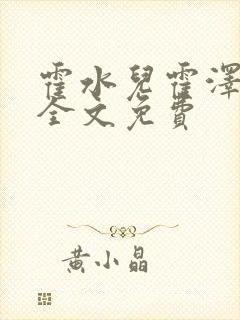 霍水兒霍澤
全文免費
黄小晶